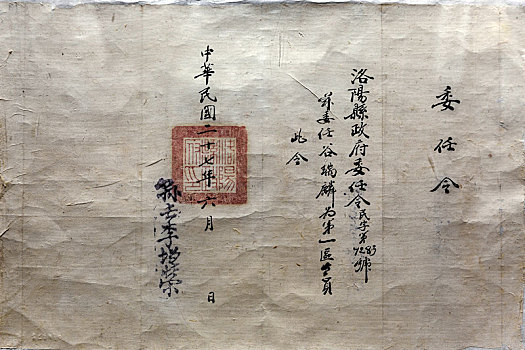 委任令
洛陽縣政府委任令民字第1283號
茲委任谷瑞麟為第一區會員
此令
中華民國二十七年六月 日
縣長李